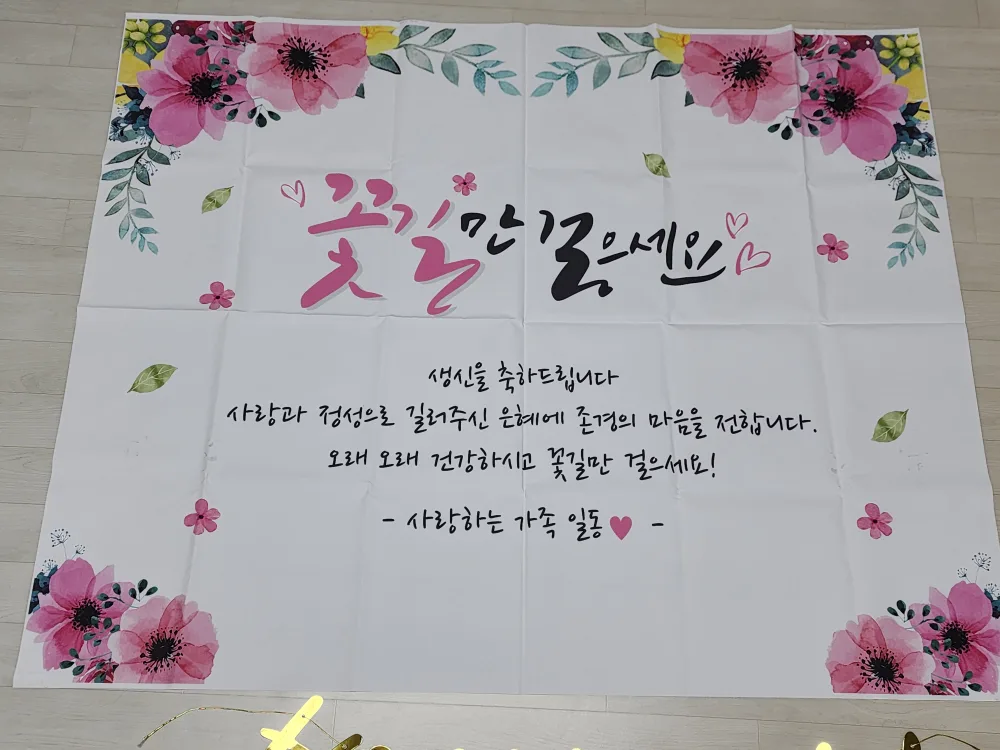 꽃길만 걸으세요
생신을 축하드립니다
사랑과 정성으로 길러주신 은혜에 존경의 마음을 전합니다.
오래 오래 건강하시고 꽃길만 걸으세요!
- 사랑하는 가족 일동♥ -